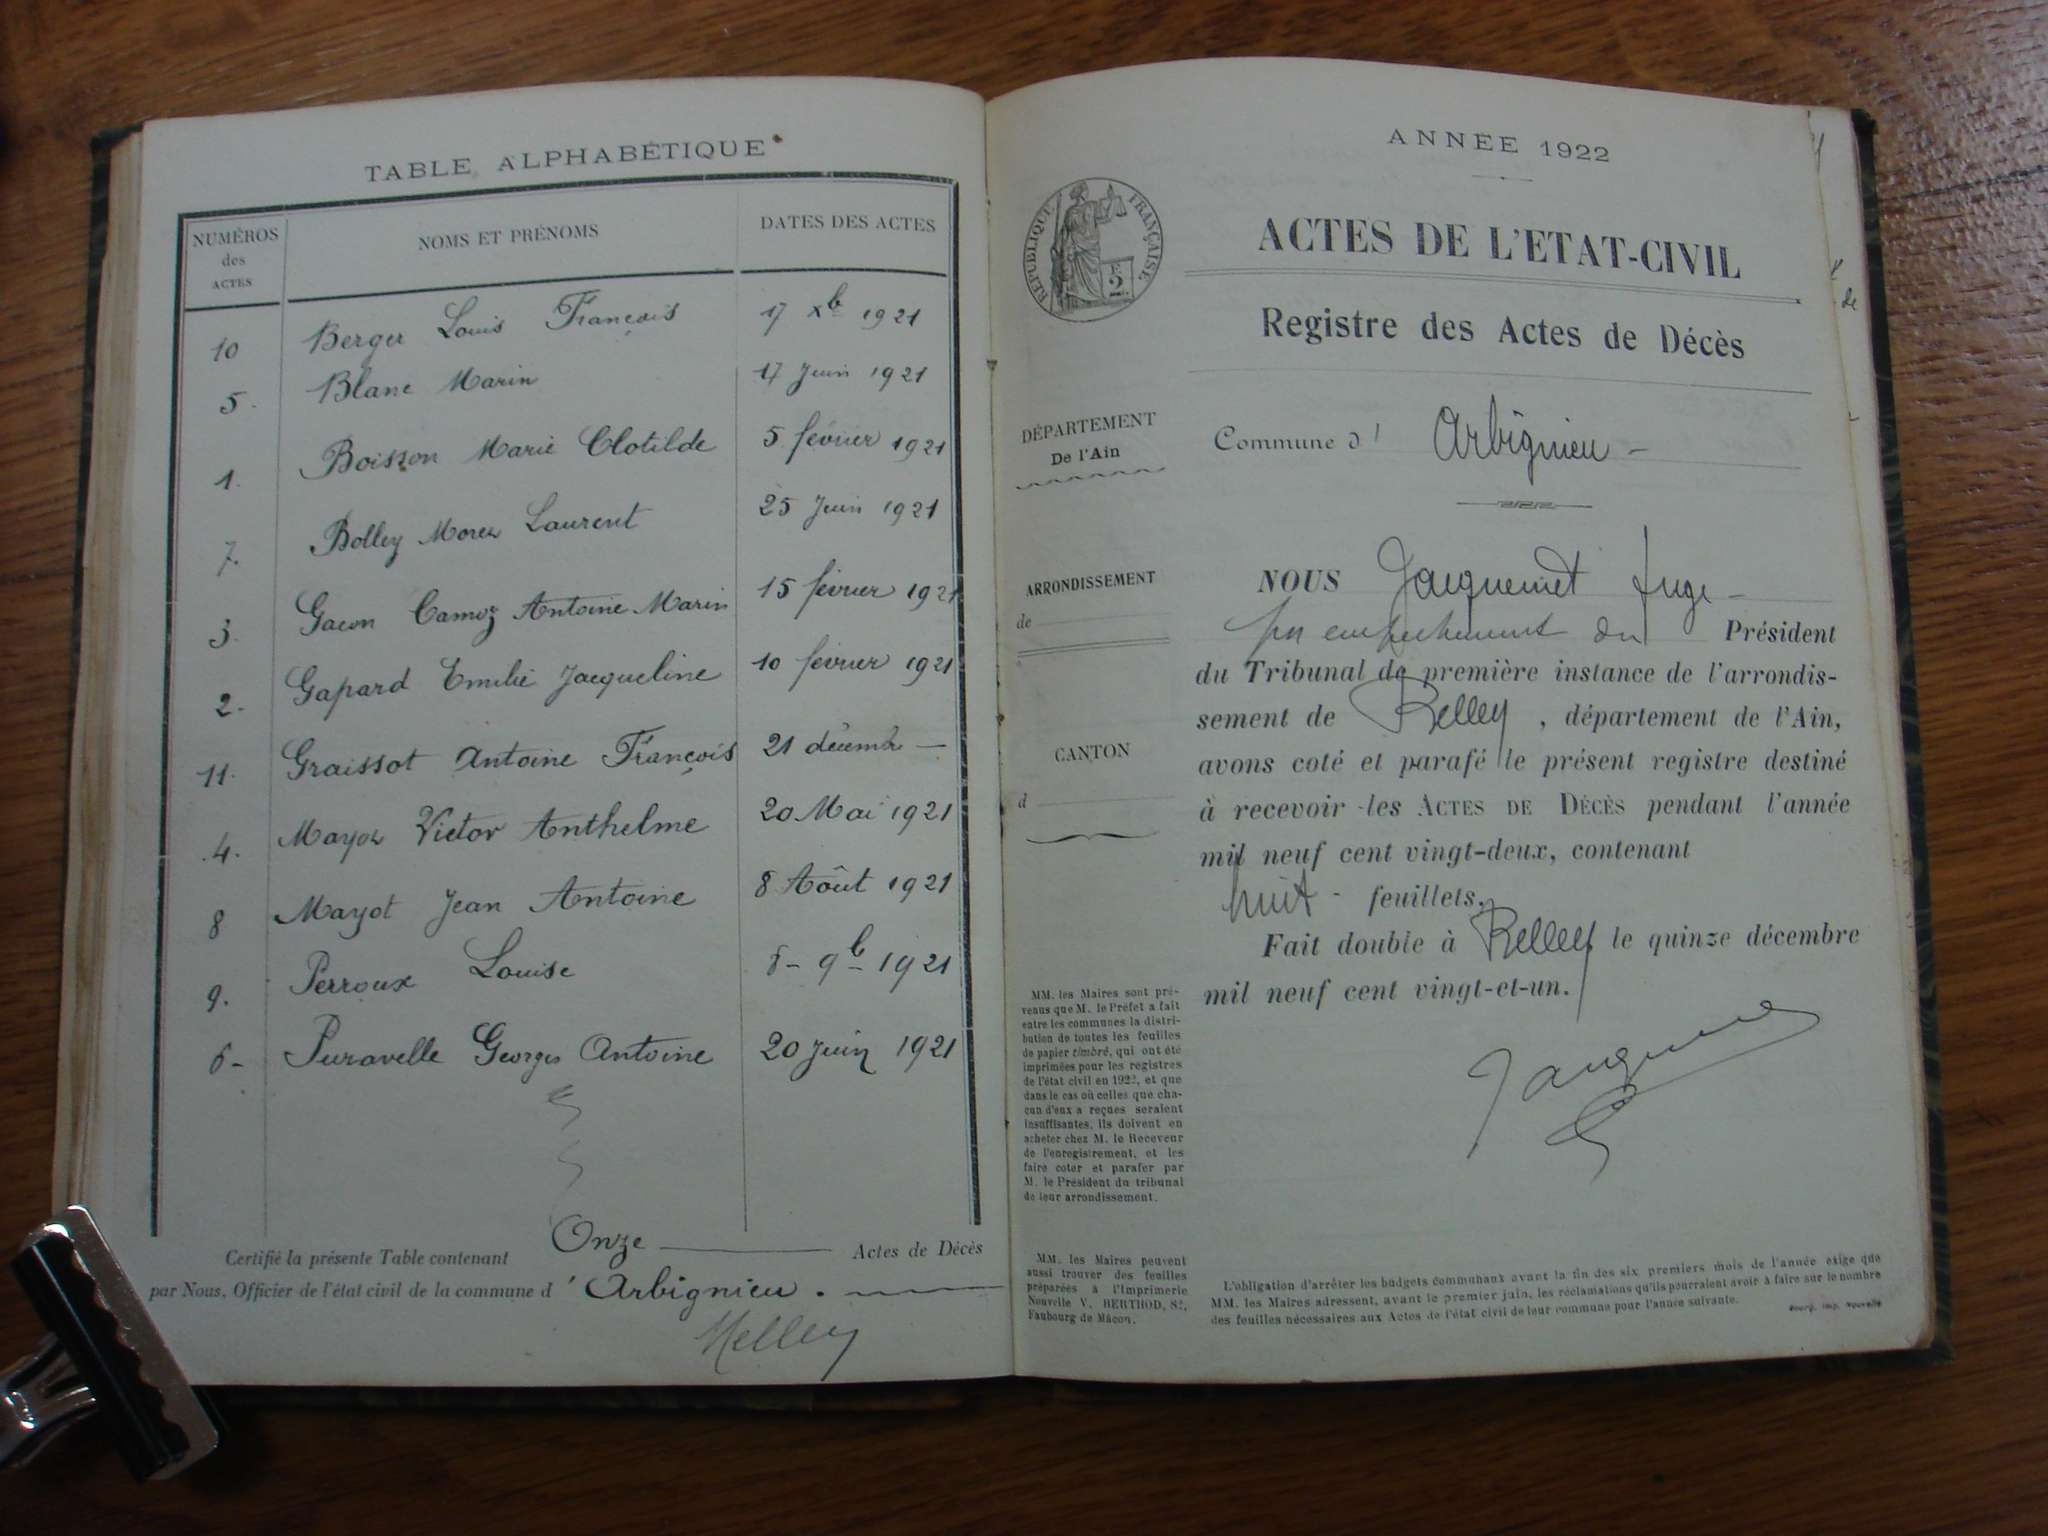 TABLE ALPHABÉTIQUE
NUMÉROS des ACTES NOMS ET PRÉNOMS DATES DES ACTES
10 Berger Louis François 17 Xb 1921
5. Blanc Marin 17 Juin 1921
1. Boisson Marie Clotilde 5 février 1921
7. Bolley Laurent 25 Juin 1921
3. Gacon Camoz Antoine Marin 15 février 1921
2. Gapard Emilie Jacqueline 10 février 1921
11. Graissot Antoine François 21 décembre —
4. Victor Anthelme 20 Mai 1921
8 Mayot Jean Antoine 8 Août 1921
9. Perroux Louise 9b 1921
6- Puravelle Georges Antoine 20 Juin 1921
Certifié la présente Table contenant Onze — Actes de Décès
par Nous, Officier de l'état civil de la commune d'Arbignieu.
ANNÉE 1922
RÉPUBLIQUE FRANÇAISE
ACTES DE L'ETAT-CIVIL
Registre des Actes de Décès
DÉPARTEMENT
De l'Ain
Commune d' Arbignieu -
ARRONDISSEMENT
de
CANTON
d
NOUS Jacquemet Juge -
par empêchement du Président
du Tribunal de première instance de l'arrondis-
sement de Belley, département de l'Ain,
avons coté et parafé le présent registre destiné
à recevoir les ACTES DE DÉCÈS pendant l'année
mil neuf cent vingt-deux, contenant
huit - feuillets.
Fait double à Belley le quinze décembre
mil neuf cent vingt-et-un.
MM. les Maires sont pré-
venus que M. le Préfet a fait
entre les communes la distri-
bution de toutes les feuilles
de papier timbré, qui ont été
imprimées pour les registres
de l'état civil en 1922, et que
dans le cas où celles que cha-
cun d'eux a reçues seraient
insuffisantes, ils doivent en
acheter chez M. le Receveur
de l'enregistrement, et les
faire coter et parafer par
M. le Président du tribunal
de leur arrondissement.
MM. les Maires peuvent
aussi trouver des feuilles
préparées à l'Imprimerie
Nouvelle V. BERTHOD,
Faubourg de Mâcon.
L'obligation d'arrêter les budgets communaux avant la fin des six premiers mois de l'année exige que
MM. les Maires adressent, avant le premier juin, les réclamations qu'ils pourraient avoir à faire sur le nombre
des feuilles nécessaires aux Actes de l'état civil de leur commune pour l'année suivante.
Bourg, Imp. Nouvelle